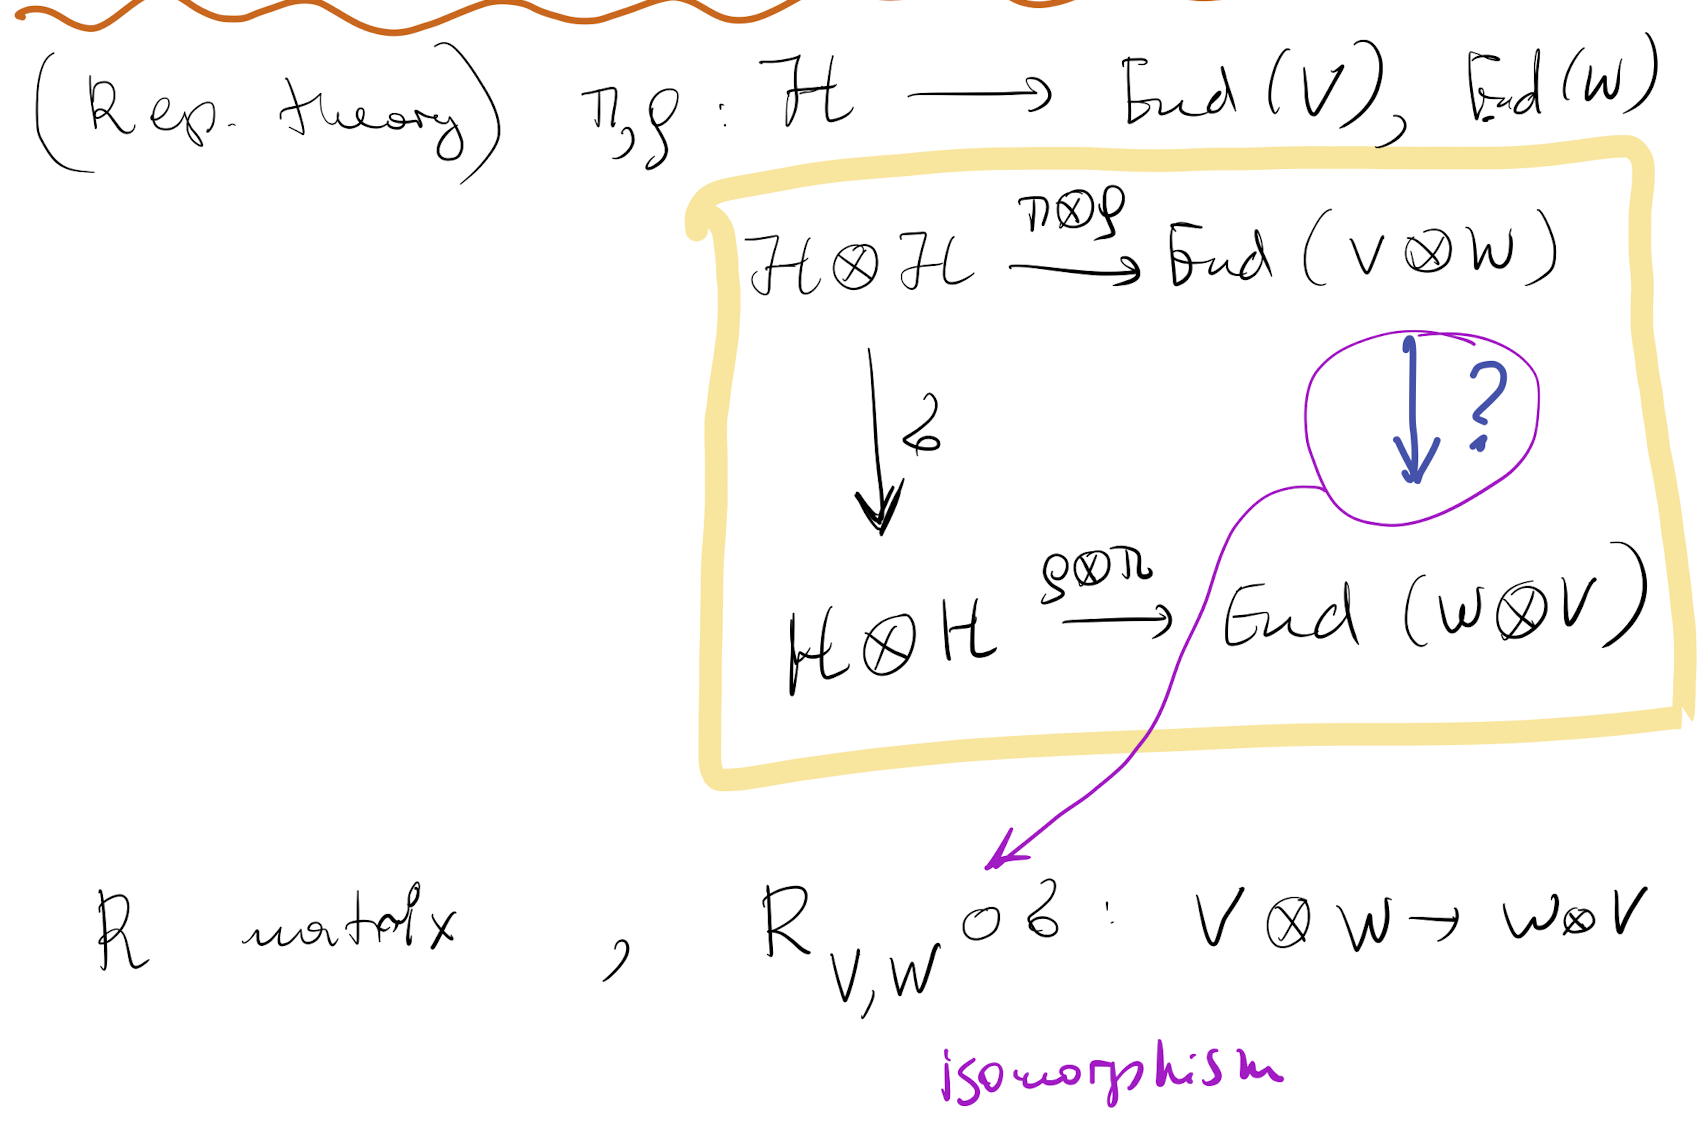 (Rep. theory) π, ρ : H ⟶ End (V), End (W)
H ⊗ H ⟶ End (V ⊗ W)
π⊗ρ
↓ σ ↓ ?
H ⊗ H ⟶ End (W ⊗ V)
ρ⊗π
R matrix , R_{V,W} ∘ σ : V ⊗ W → W ⊗ V
isomorphism